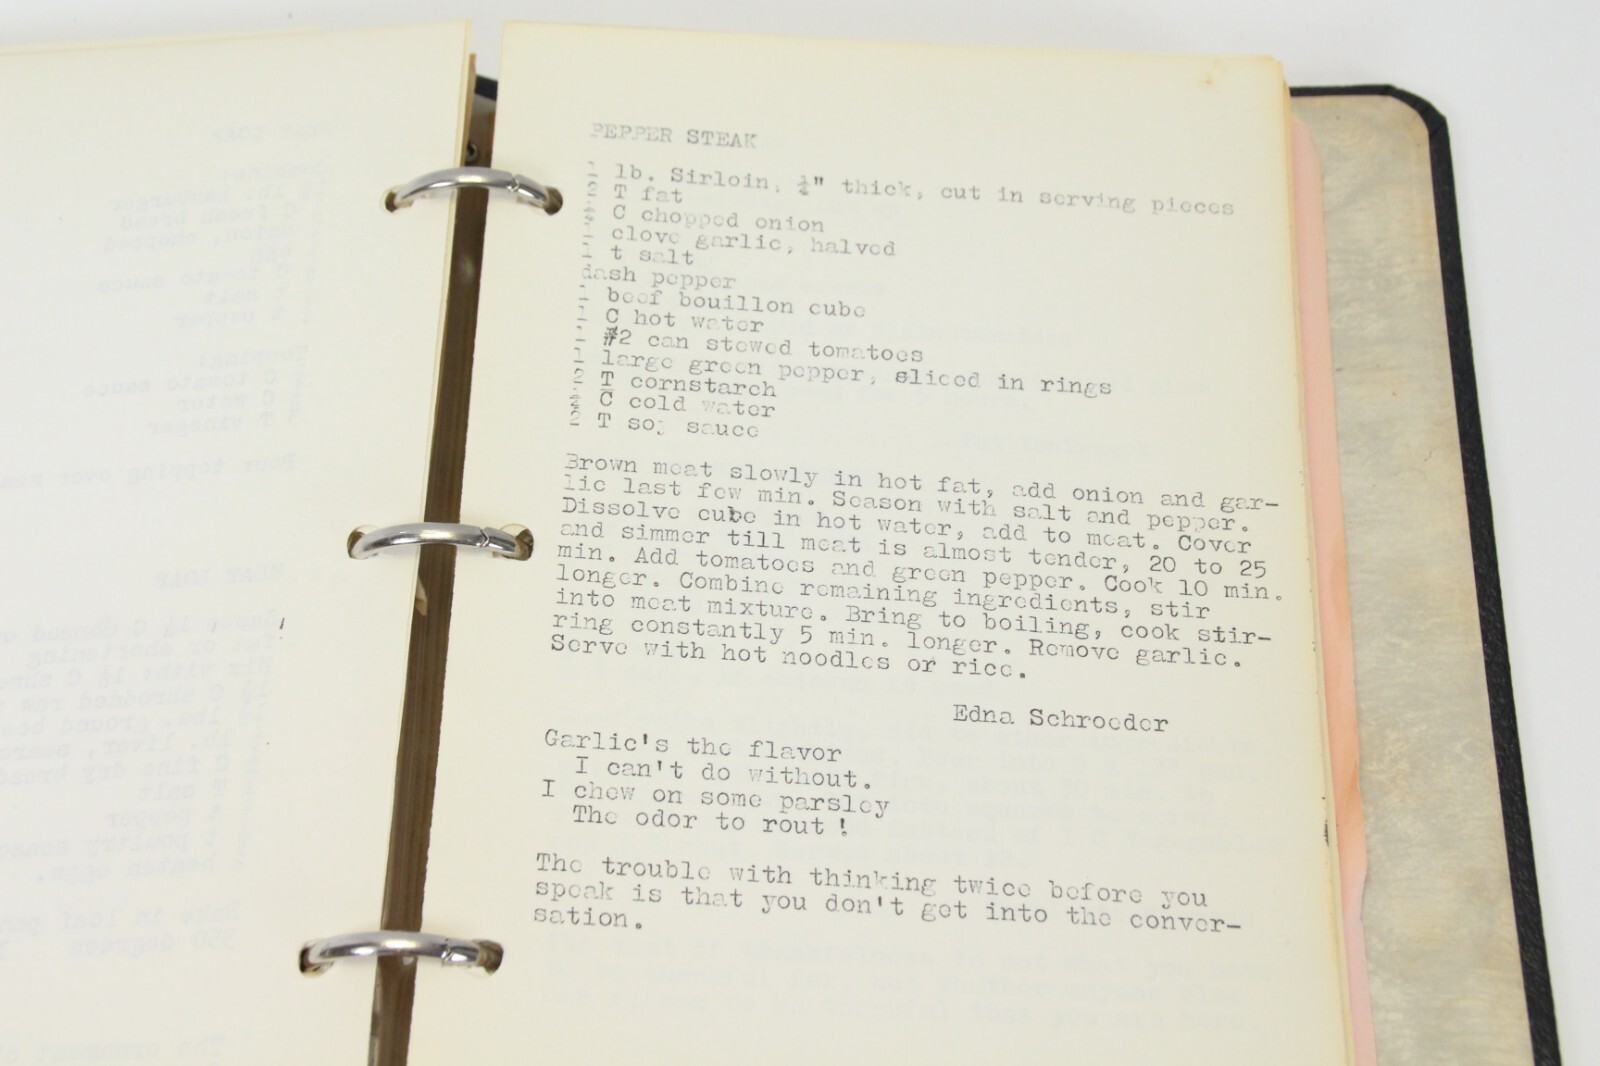 PEPPER STEAK
1 lb. Sirloin, ¼" thick, cut in serving pieces
2 T fat
C chopped onion
1 clove garlic, halved
1 t salt
dash pepper
1 beef bouillon cube
1 C hot water
1 #2 can stewed tomatoes
1 large green pepper, sliced in rings
2 T cornstarch
C cold water
2 T soy sauce
Brown meat slowly in hot fat, add onion and gar-
lic last few min. Season with salt and pepper.
Dissolve cube in hot water, add to meat. Cover
and simmer till meat is almost tender, 20 to 25
min. Add tomatoes and green pepper. Cook 10 min.
longer. Combine remaining ingredients, stir
into meat mixture. Bring to boiling, cook stir-
ring constantly 5 min. longer. Remove garlic.
Serve with hot noodles or rice.
Edna Schroeder
Garlic's the flavor
I can't do without.
I chew on some parsley
The odor to rout !
The trouble with thinking twice before you
speak is that you don't get into the conver-
sation.